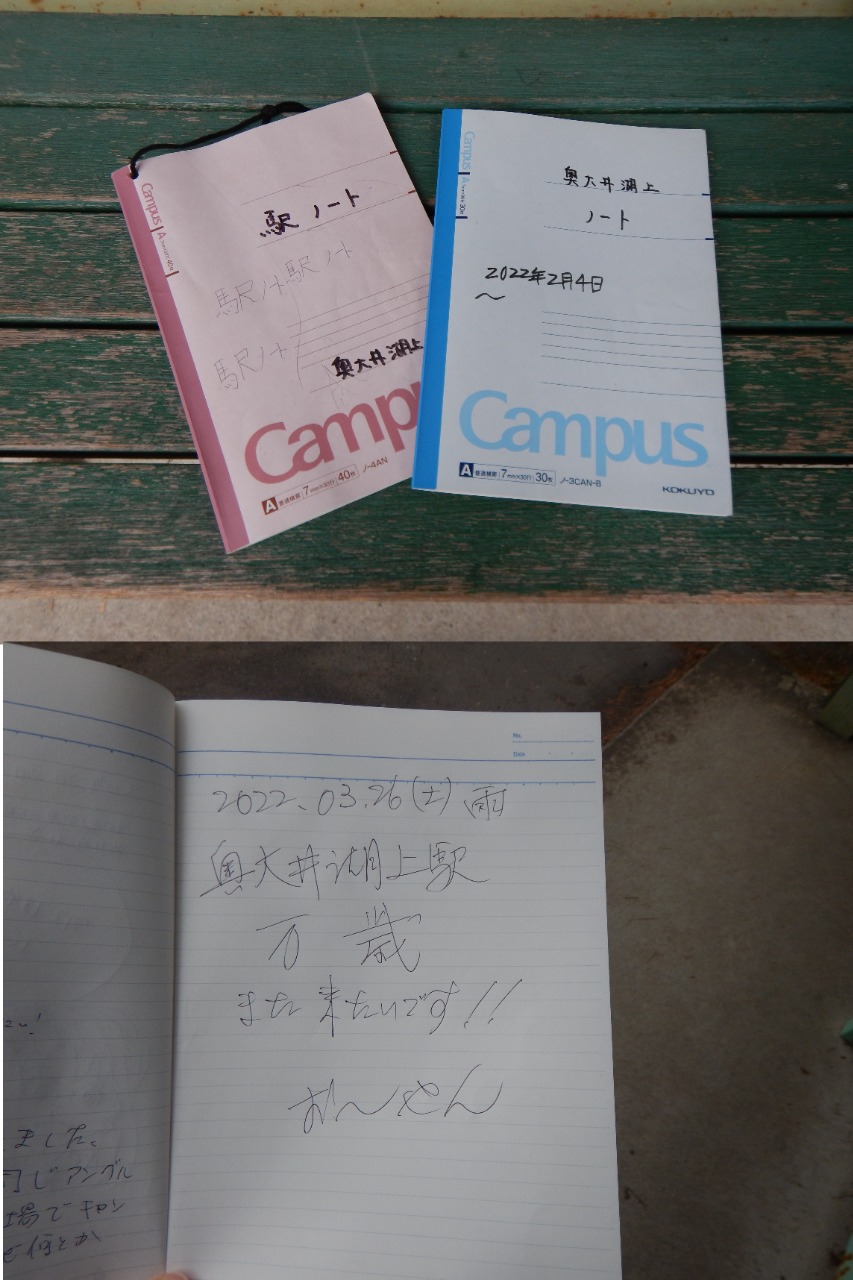 Campus A 7mm×30行 40枚
駅ノート
駅ノート 駅ノート
駅ノート
奥大井湖上
Campu
A 普通横罫 7mm×30行 40枚 ノ-4AN
Campus A 7mm×30行 30枚
奥大井湖上
ノート
2022年2月4日
〜
Campus
A 普通横罫 7mm×30行 30枚 ノ-3CAN-B
KOKUYO
No.
Date
2022.03.26(土)雨
奥大井湖上駅
万歳
また来たいです!!
ました。
じアングル
場でキャン
何とか